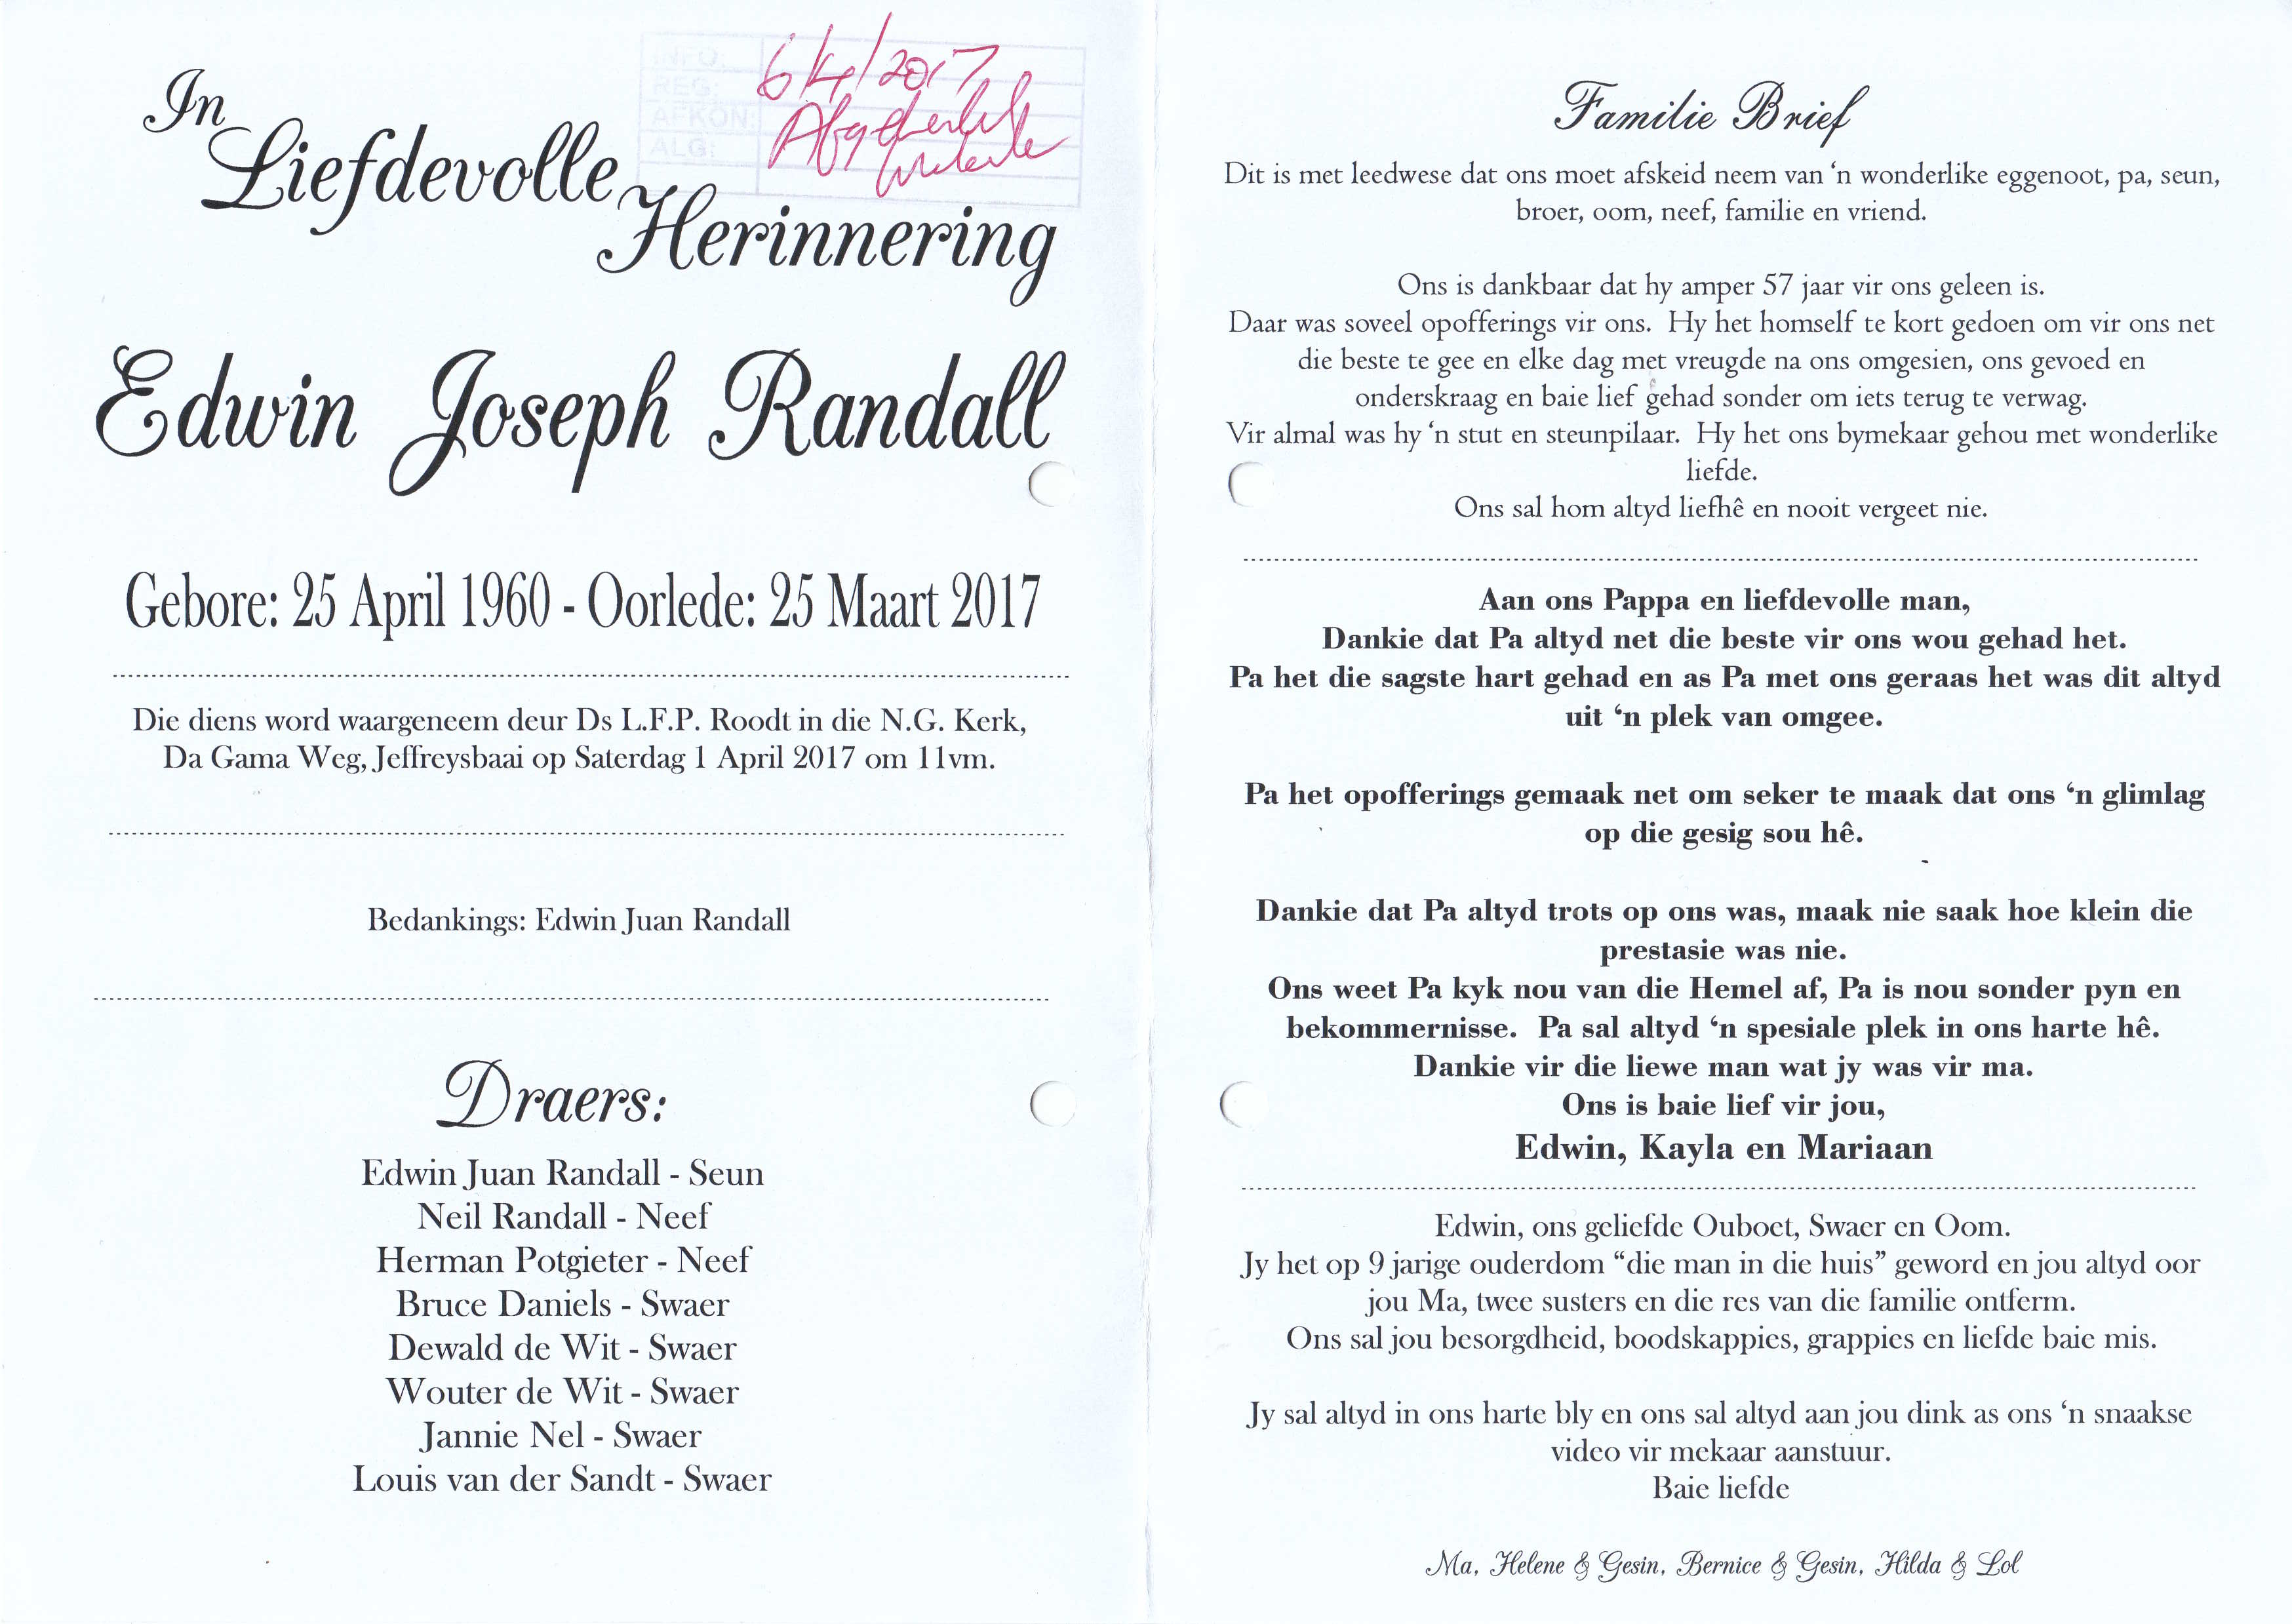 In
Liefdevolle
Herinnering
INFO:
REG:
AFKON:
ALG:
6/4/2017
Edwin Joseph Randall
Gebore: 25 April 1960 - Oorlede: 25 Maart 2017
Die diens word waargeneem deur Ds L.F.P. Roodt in die N.G. Kerk,
Da Gama Weg, Jeffreysbaai op Saterdag 1 April 2017 om 11vm.
Bedankings: Edwin Juan Randall
Draers:
Edwin Juan Randall - Seun
Neil Randall - Neef
Herman Potgieter - Neef
Bruce Daniels - Swaer
Dewald de Wit - Swaer
Wouter de Wit - Swaer
Jannie Nel - Swaer
Louis van der Sandt - Swaer
Familie Brief
Dit is met leedwese dat ons moet afskeid neem van ‘n wonderlike eggenoot, pa, seun,
broer, oom, neef, familie en vriend.
Ons is dankbaar dat hy amper 57 jaar vir ons geleen is.
Daar was soveel opofferings vir ons. Hy het homself te kort gedoen om vir ons net
die beste te gee en elke dag met vreugde na ons omgesien, ons gevoed en
onderskraag en baie lief gehad sonder om iets terug te verwag.
Vir almal was hy ‘n stut en steunpilaar. Hy het ons bymekaar gehou met wonderlike
liefde.
Ons sal hom altyd liefhê en nooit vergeet nie.
Aan ons Pappa en liefdevolle man,
Dankie dat Pa altyd net die beste vir ons wou gehad het.
Pa het die sagste hart gehad en as Pa met ons geraas het was dit altyd
uit ‘n plek van omgee.
Pa het opofferings gemaak net om seker te maak dat ons ‘n glimlag
op die gesig sou hê.
Dankie dat Pa altyd trots op ons was, maak nie saak hoe klein die
prestasie was nie.
Ons weet Pa kyk nou van die Hemel af, Pa is nou sonder pyn en
bekommernisse. Pa sal altyd ‘n spesiale plek in ons harte hê.
Dankie vir die liewe man wat jy was vir ma.
Ons is baie lief vir jou,
Edwin, Kayla en Mariaan
Edwin, ons geliefde Ouboet, Swaer en Oom.
Jy het op 9 jarige ouderdom “die man in die huis” geword en jou altyd oor
jou Ma, twee susters en die res van die familie ontferm.
Ons sal jou besorgdheid, boodskappies, grappies en liefde baie mis.
Jy sal altyd in ons harte bly en ons sal altyd aan jou dink as ons ‘n snaakse
video vir mekaar aanstuur.
Baie liefde
Ma, Helene & Gesin, Bernice & Gesin, Hilda & Lol